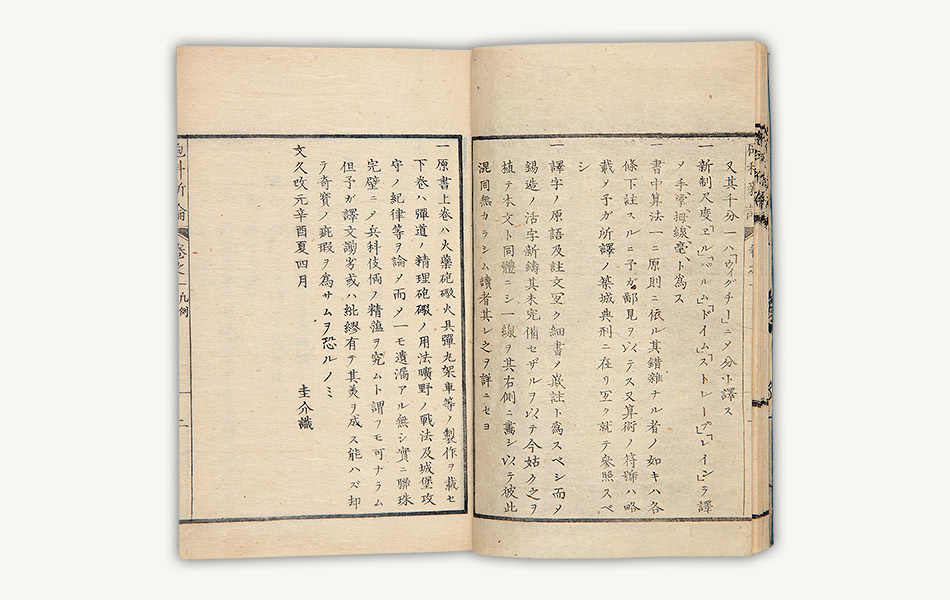 又其千分一ハ「ウィグチー」ニノ分ト譯ス
一新制尺度ヱ「ル」「パルム」「ドイム」「ストレープ」「レイン」ヲ譯
ノ手掌拇線毫ト爲ス
一書中算法一ニ原則ニ依ル其錯雜ナル者ノ如キハ各
條下註スルニ予ガ鄙見ヲ以テス又算術ノ符號ハ略
載ノ予ガ所譯ノ築城典刑ニ在リ宜ク就テ參照スベ
シ
一譯字ノ原語及註文宜ク細書ノ嵌註ト爲スベシ而ノ
錫造ノ活字新鑄其未完備セザルヲ以テ今姑ク之ヲ
植テ本文ト同體ニシ一線ヲ其右側ニ畫シ以テ彼此
混同無カラシム讀者其レ之ヲ詳ニセヨ
一原書上巻ハ火藥砲礮火具彈丸架車等ノ製作ヲ載セ
下巻ハ彈道ノ精理砲礮ノ用法曠野ノ戰法及城堡攻
守ノ紀律等ヲ論ノ而ノ一モ遺漏アル無シ實ニ聯珠
完璧ニノ兵科伎倆ノ精蘊ヲ究ムト謂フモ可ナラム
但予ガ譯文譾劣或ハ紕繆有テ其美ヲ成ス能ハズ却
テ奇寶ノ疵瑕ヲ爲サムヲ恐ルノミ
文久改元辛酉夏四月
圭介識
砲科新論 巻之一 凡例 二